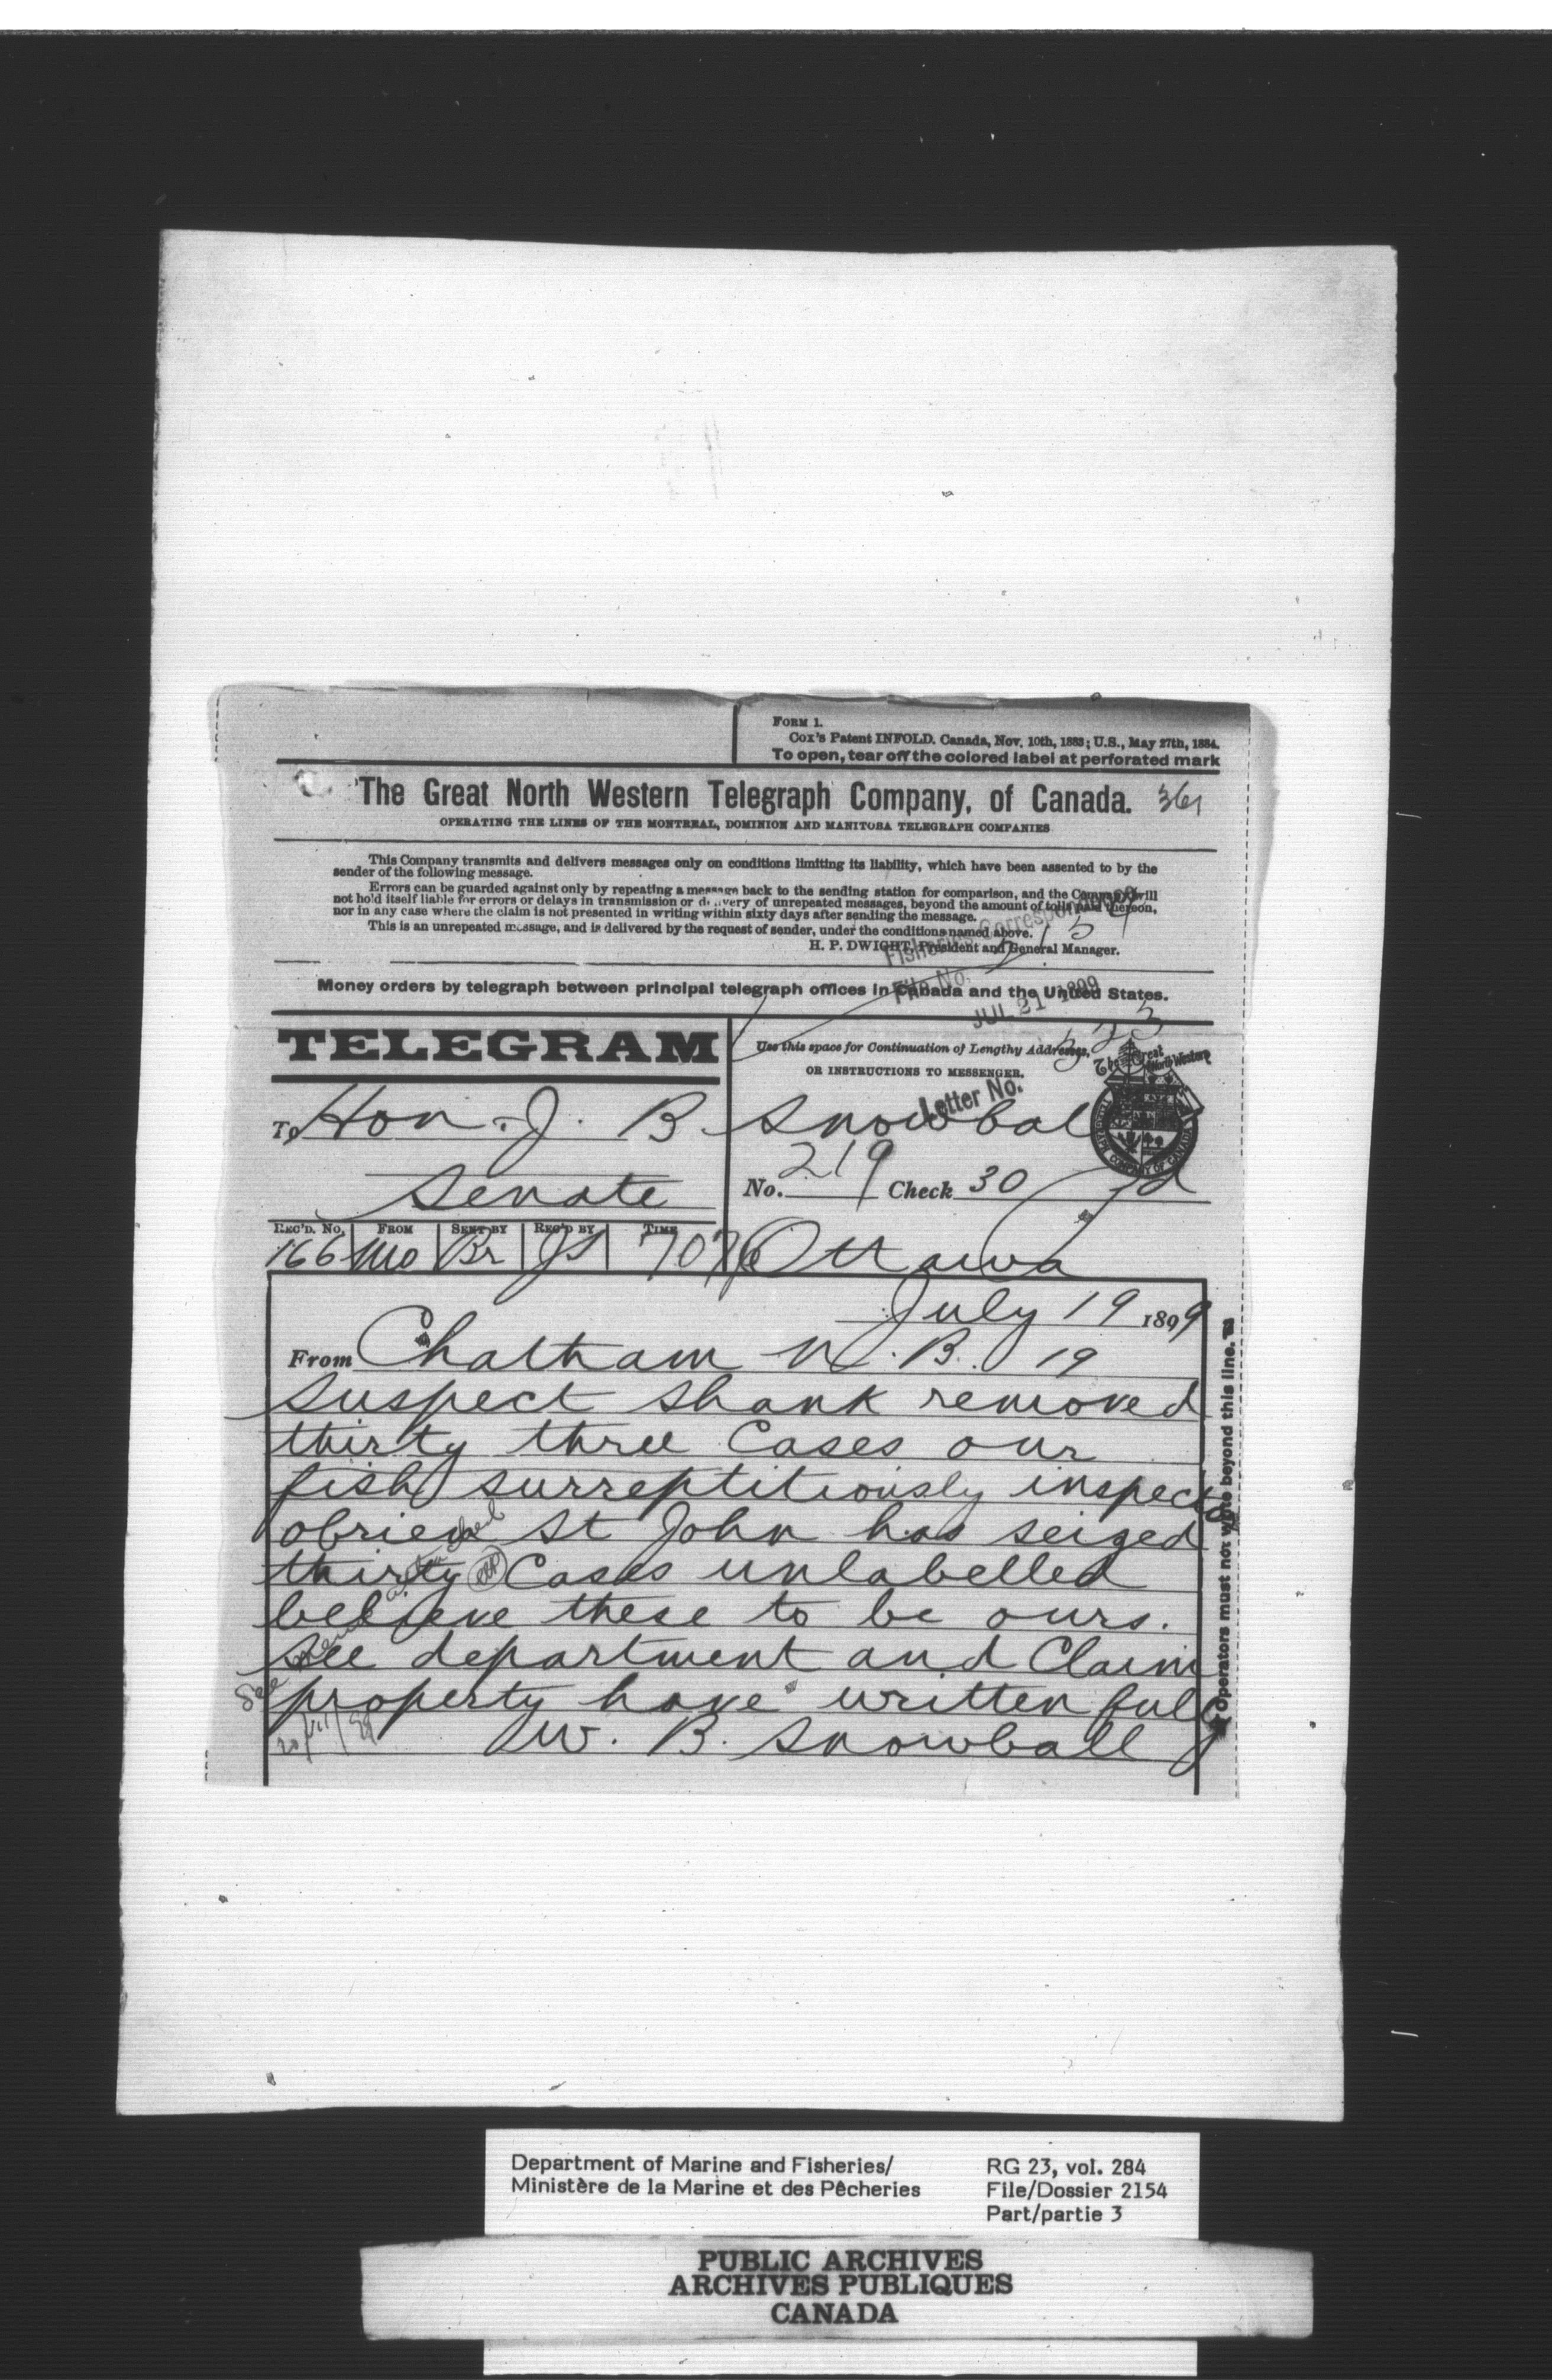 FORM 1.
Cox's Patent INFOLD. Canada, Nov. 10th, 1883; U.S., May 27th, 1884.
To open, tear off the colored label at perforated mark
The Great North Western Telegraph Company, of Canada. 361
OPERATING THE LINES OF THE MONTREAL, DOMINION AND MANITOBA TELEGRAPH COMPANIES
This Company transmits and delivers messages only on conditions limiting its liability, which have been assented to by the
sender of the following message.
Errors can be guarded against only by repeating a message back to the sending station for comparison, and the Company will
not hold itself liable for errors or delays in transmission or delivery of unrepeated messages, beyond the amount of tolls paid thereon,
nor in any case where the claim is not presented in writing within sixty days after sending the message.
This is an unrepeated message, and is delivered by the request of sender, under the conditions named above.
H. P. DWIGHT, President and General Manager.
Fisheries Correspondence
File No.
JUL 21 1899
Money orders by telegraph between principal telegraph offices in Canada and the United States.
TELEGRAM
Use this space for Continuation of Lengthy Addresses,
OR INSTRUCTIONS TO MESSENGER.
Letter No. 523
The Great North Western
TELEGRAPH COMPANY OF CANADA
To Hon. J. B. Snowbal
Senate
No. 219 Check 30 Pd
REC'D. No. FROM SENT BY REC'D BY TIME
166 Mo Br JS 707
Ottawa
July 19 1899
From Chatham N. B. 19
Suspect Shank removed
thirty three Cases our
fish surreptitiously inspectr
obrien St John has seized
thirty Cases unlabelled
believe these to be ours.
See department and Claim
property have written fully
W. B. Snowball
See memo attached
20/VII/99
Operators must not write beyond this line.
Department of Marine and Fisheries/
Ministère de la Marine et des Pêcheries
RG 23, vol. 284
File/Dossier 2154
Part/partie 3
PUBLIC ARCHIVES
ARCHIVES PUBLIQUES
CANADA